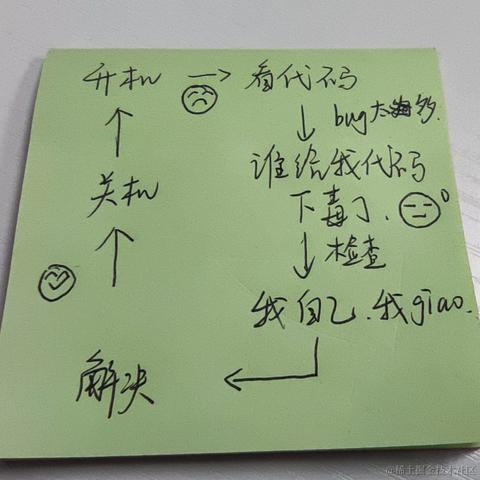 开机 → 看代码
↓ bug太多.
谁给我代码
下毒了.
↓ 检查
我自己.我giao.
解决
↑
关机
↑
@稀土掘金技术社区